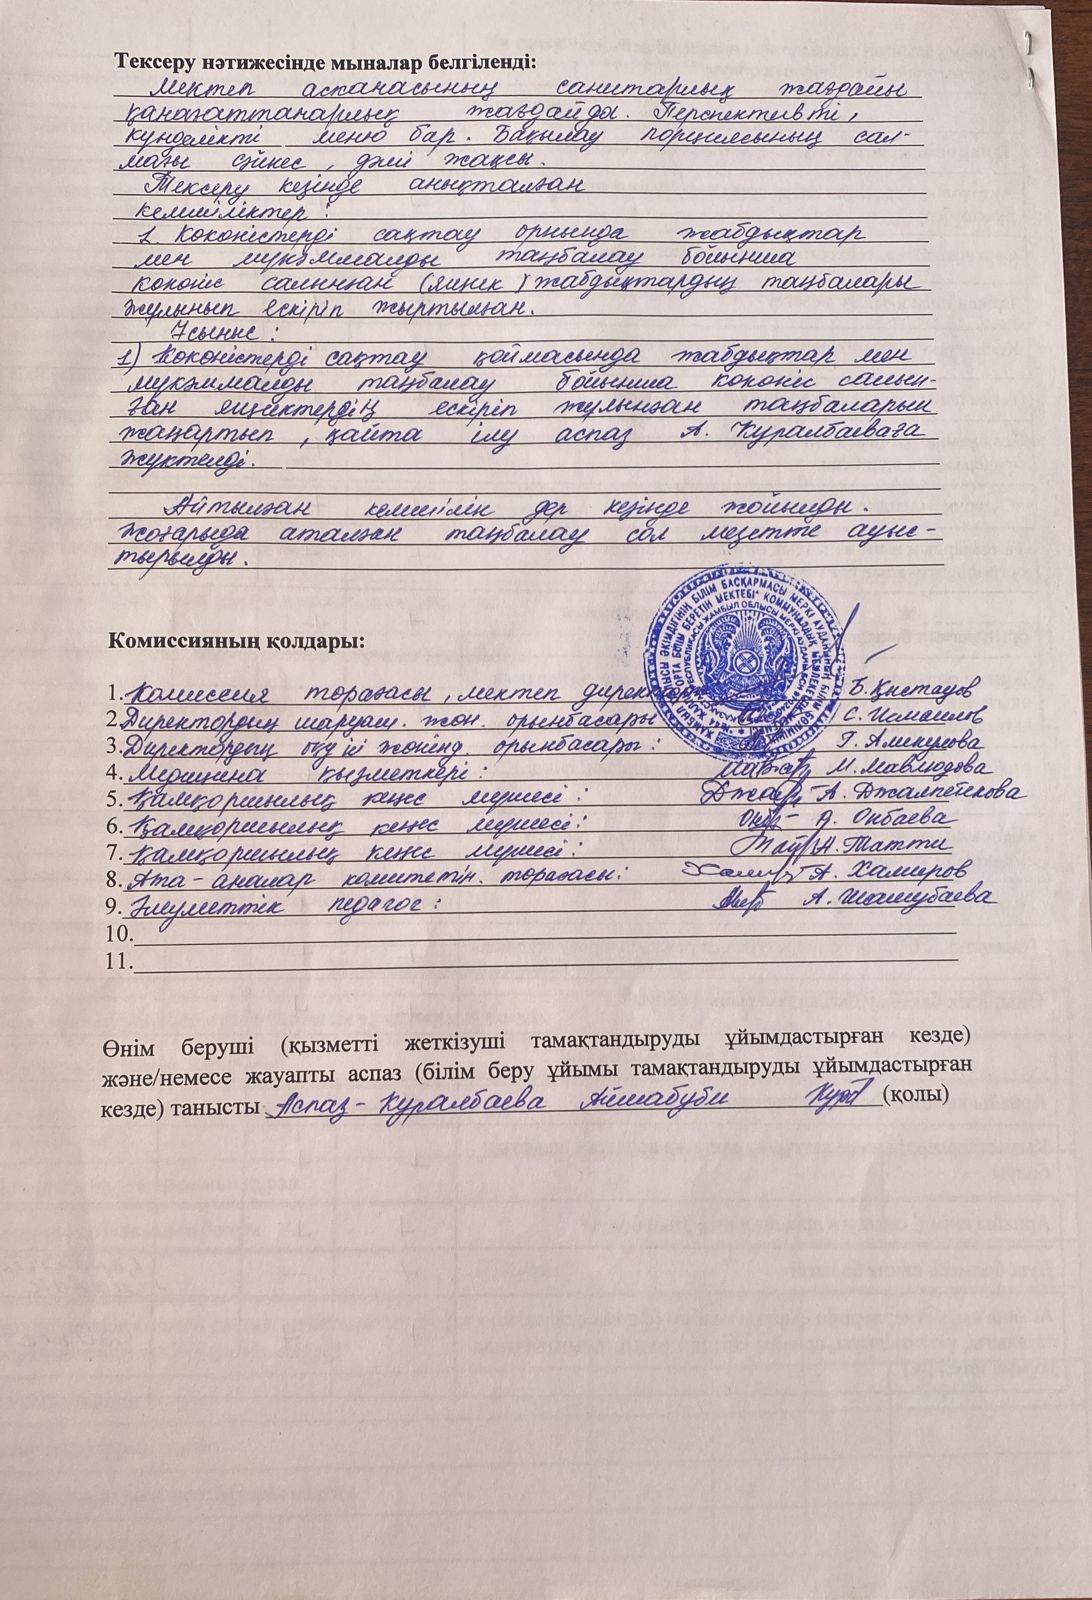 Тексеру нәтижесінде мыналар белгіленді:
Мектеп асханасының санитарлық жағдайы
қанағаттанарлық жағдайда. Перспективті,
күнделікті меню бар. Бақылау порциясының сал-
мағы сәйкес, дәмі жақсы.
Тексеру кезінде анықталған
кемшіліктер:
1. Көкөністерді сақтау орнында жабдықтар
мен мүкәммалды таңбалау бойынша
көкөніс салынған (ящик) жабдықтардың таңбалары
жұлынып ескіріп жыртылған.
Ұсыныс:
1) Көкөністерді сақтау қоймасында жабдықтар мен
мүкәммалды таңбалау бойынша көкөніс салын-
ған ящиктердің ескіріп жұлынған таңбаларын
жаңартып, қайта ілу аспаз А. Куралбаеваға
жүктелді.
Айтылған кемшілік дер кезінде жойылды.
Жоғарыда аталған таңбалау сол мезетте ауыс-
тырылды.
Комиссияның қолдары:
1. Комиссия төрағасы, мектеп директоры Б. Қыстауов
2. Директордың шаруаш. жөн. орынбасары С. Исмаилов
3. Директордың оқу ісі жөнінд. орынбасары: Г. Алимкулова
4. Медицина қызметкері: М. Мавлюдова
5. Қамқоршылық кеңес мүшесі: А. Джалпейсова
6. Қамқоршылық кеңес мүшесі: А. Онбаева
7. Қамқоршылық кеңес мүшесі: Н. Татти
8. Ата-аналар комитетін. төрағасы: А. Хамиров
9. Әлеуметтік педагог: А. Шашубаева
10.
11.
Өнім беруші (қызметті жеткізуші тамақтандыруды ұйымдастырған кезде)
және/немесе жауапты аспаз (білім беру ұйымы тамақтандыруды ұйымдастырған
кезде) танысты Аспаз - Куралбаева Айшабуби (қолы)